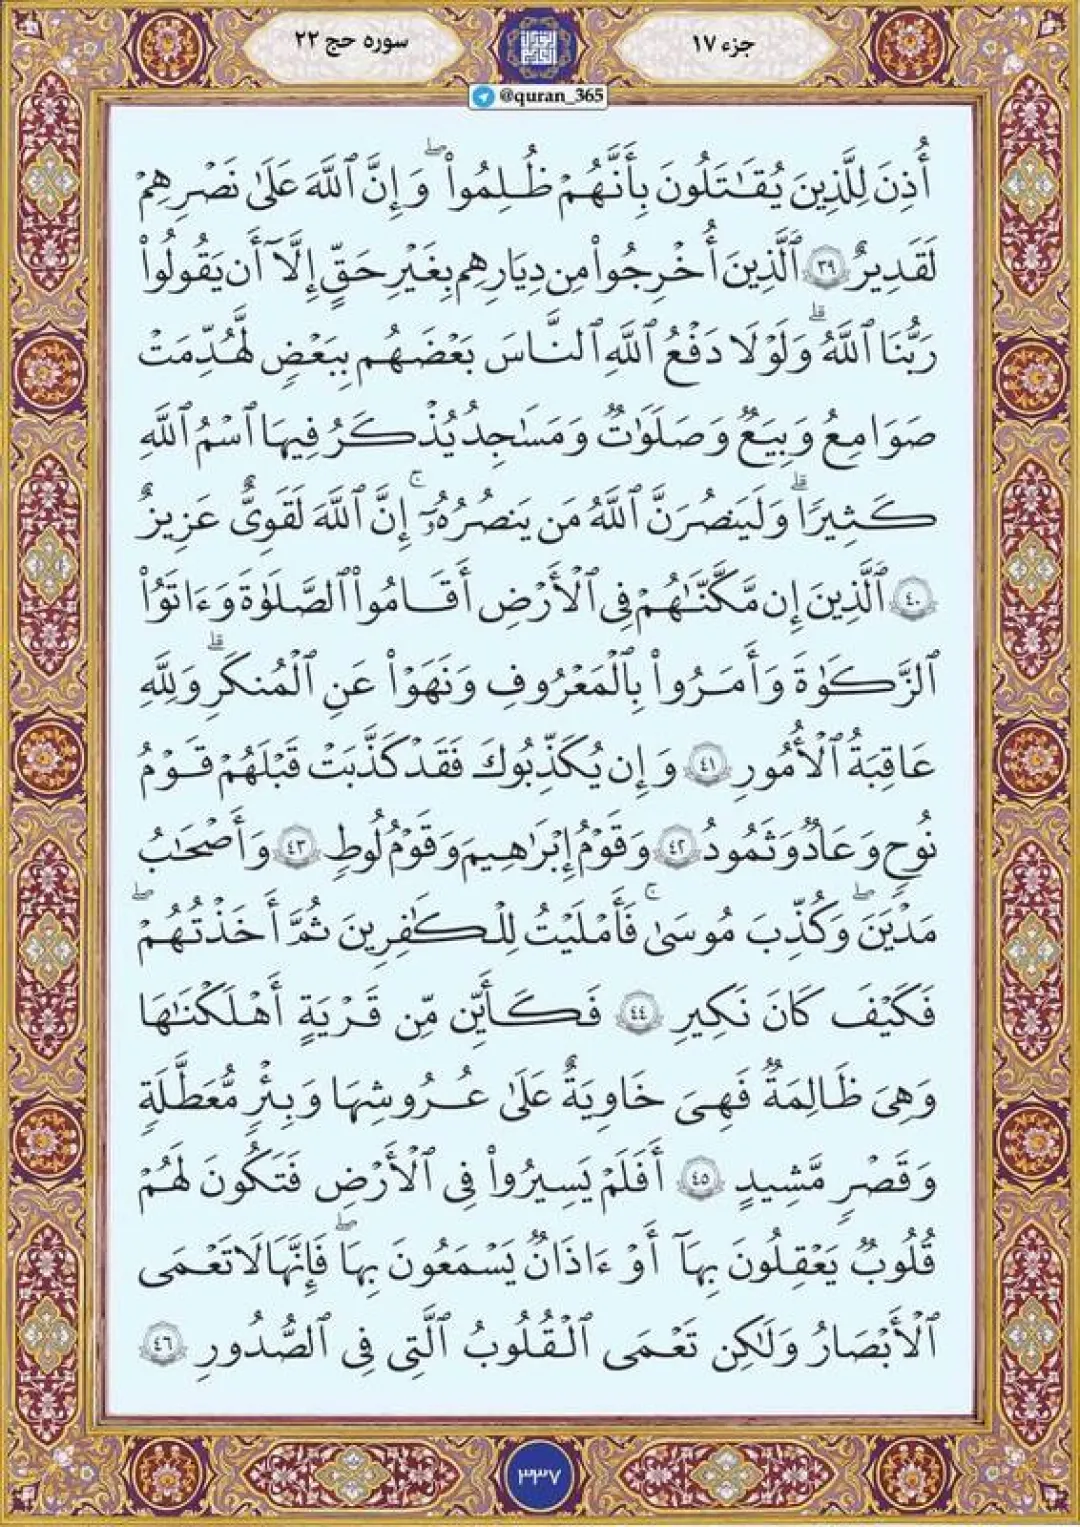 جزء ۱۷
سوره حج ۲۲
@quran_365
أُذِنَ لِلَّذِينَ يُقَٰتَلُونَ بِأَنَّهُمْ ظُلِمُوا۟ ۖ وَإِنَّ ٱللَّهَ عَلَىٰ نَصْرِهِمْ
لَقَدِيرٌ ۝٣٩ ٱلَّذِينَ أُخْرِجُوا۟ مِن دِيَٰرِهِم بِغَيْرِ حَقٍّ إِلَّآ أَن يَقُولُوا۟
رَبُّنَا ٱللَّهُ ۗ وَلَوْلَا دَفْعُ ٱللَّهِ ٱلنَّاسَ بَعْضَهُم بِبَعْضٍ لَّهُدِّمَتْ
صَوَٰمِعُ وَبِيَعٌ وَصَلَوَٰتٌ وَمَسَٰجِدُ يُذْكَرُ فِيهَا ٱسْمُ ٱللَّهِ
كَثِيرًا ۗ وَلَيَنصُرَنَّ ٱللَّهُ مَن يَنصُرُهُۥٓ ۚ إِنَّ ٱللَّهَ لَقَوِىٌّ عَزِيزٌ
۝٤٠ ٱلَّذِينَ إِن مَّكَّنَّٰهُمْ فِى ٱلْأَرْضِ أَقَامُوا۟ ٱلصَّلَوٰةَ وَءَاتَوُا۟
ٱلزَّكَوٰةَ وَأَمَرُوا۟ بِٱلْمَعْرُوفِ وَنَهَوْا۟ عَنِ ٱلْمُنكَرِ ۗ وَلِلَّهِ
عَٰقِبَةُ ٱلْأُمُورِ ۝٤١ وَإِن يُكَذِّبُوكَ فَقَدْ كَذَّبَتْ قَبْلَهُمْ قَوْمُ
نُوحٍ وَعَادٌ وَثَمُودُ ۝٤٢ وَقَوْمُ إِبْرَٰهِيمَ وَقَوْمُ لُوطٍ ۝٤٣ وَأَصْحَٰبُ
مَدْيَنَ ۖ وَكُذِّبَ مُوسَىٰ ۚ فَأَمْلَيْتُ لِلْكَٰفِرِينَ ثُمَّ أَخَذْتُهُمْ ۖ
فَكَيْفَ كَانَ نَكِيرِ ۝٤٤ فَكَأَيِّن مِّن قَرْيَةٍ أَهْلَكْنَٰهَا
وَهِىَ ظَالِمَةٌ فَهِىَ خَاوِيَةٌ عَلَىٰ عُرُوشِهَا وَبِئْرٍ مُّعَطَّلَةٍ
وَقَصْرٍ مَّشِيدٍ ۝٤٥ أَفَلَمْ يَسِيرُوا۟ فِى ٱلْأَرْضِ فَتَكُونَ لَهُمْ
قُلُوبٌ يَعْقِلُونَ بِهَآ أَوْ ءَاذَانٌ يَسْمَعُونَ بِهَا ۖ فَإِنَّهَا لَا تَعْمَى
ٱلْأَبْصَٰرُ وَلَٰكِن تَعْمَى ٱلْقُلُوبُ ٱلَّتِى فِى ٱلصُّدُورِ ۝٤٦
۳۳۷